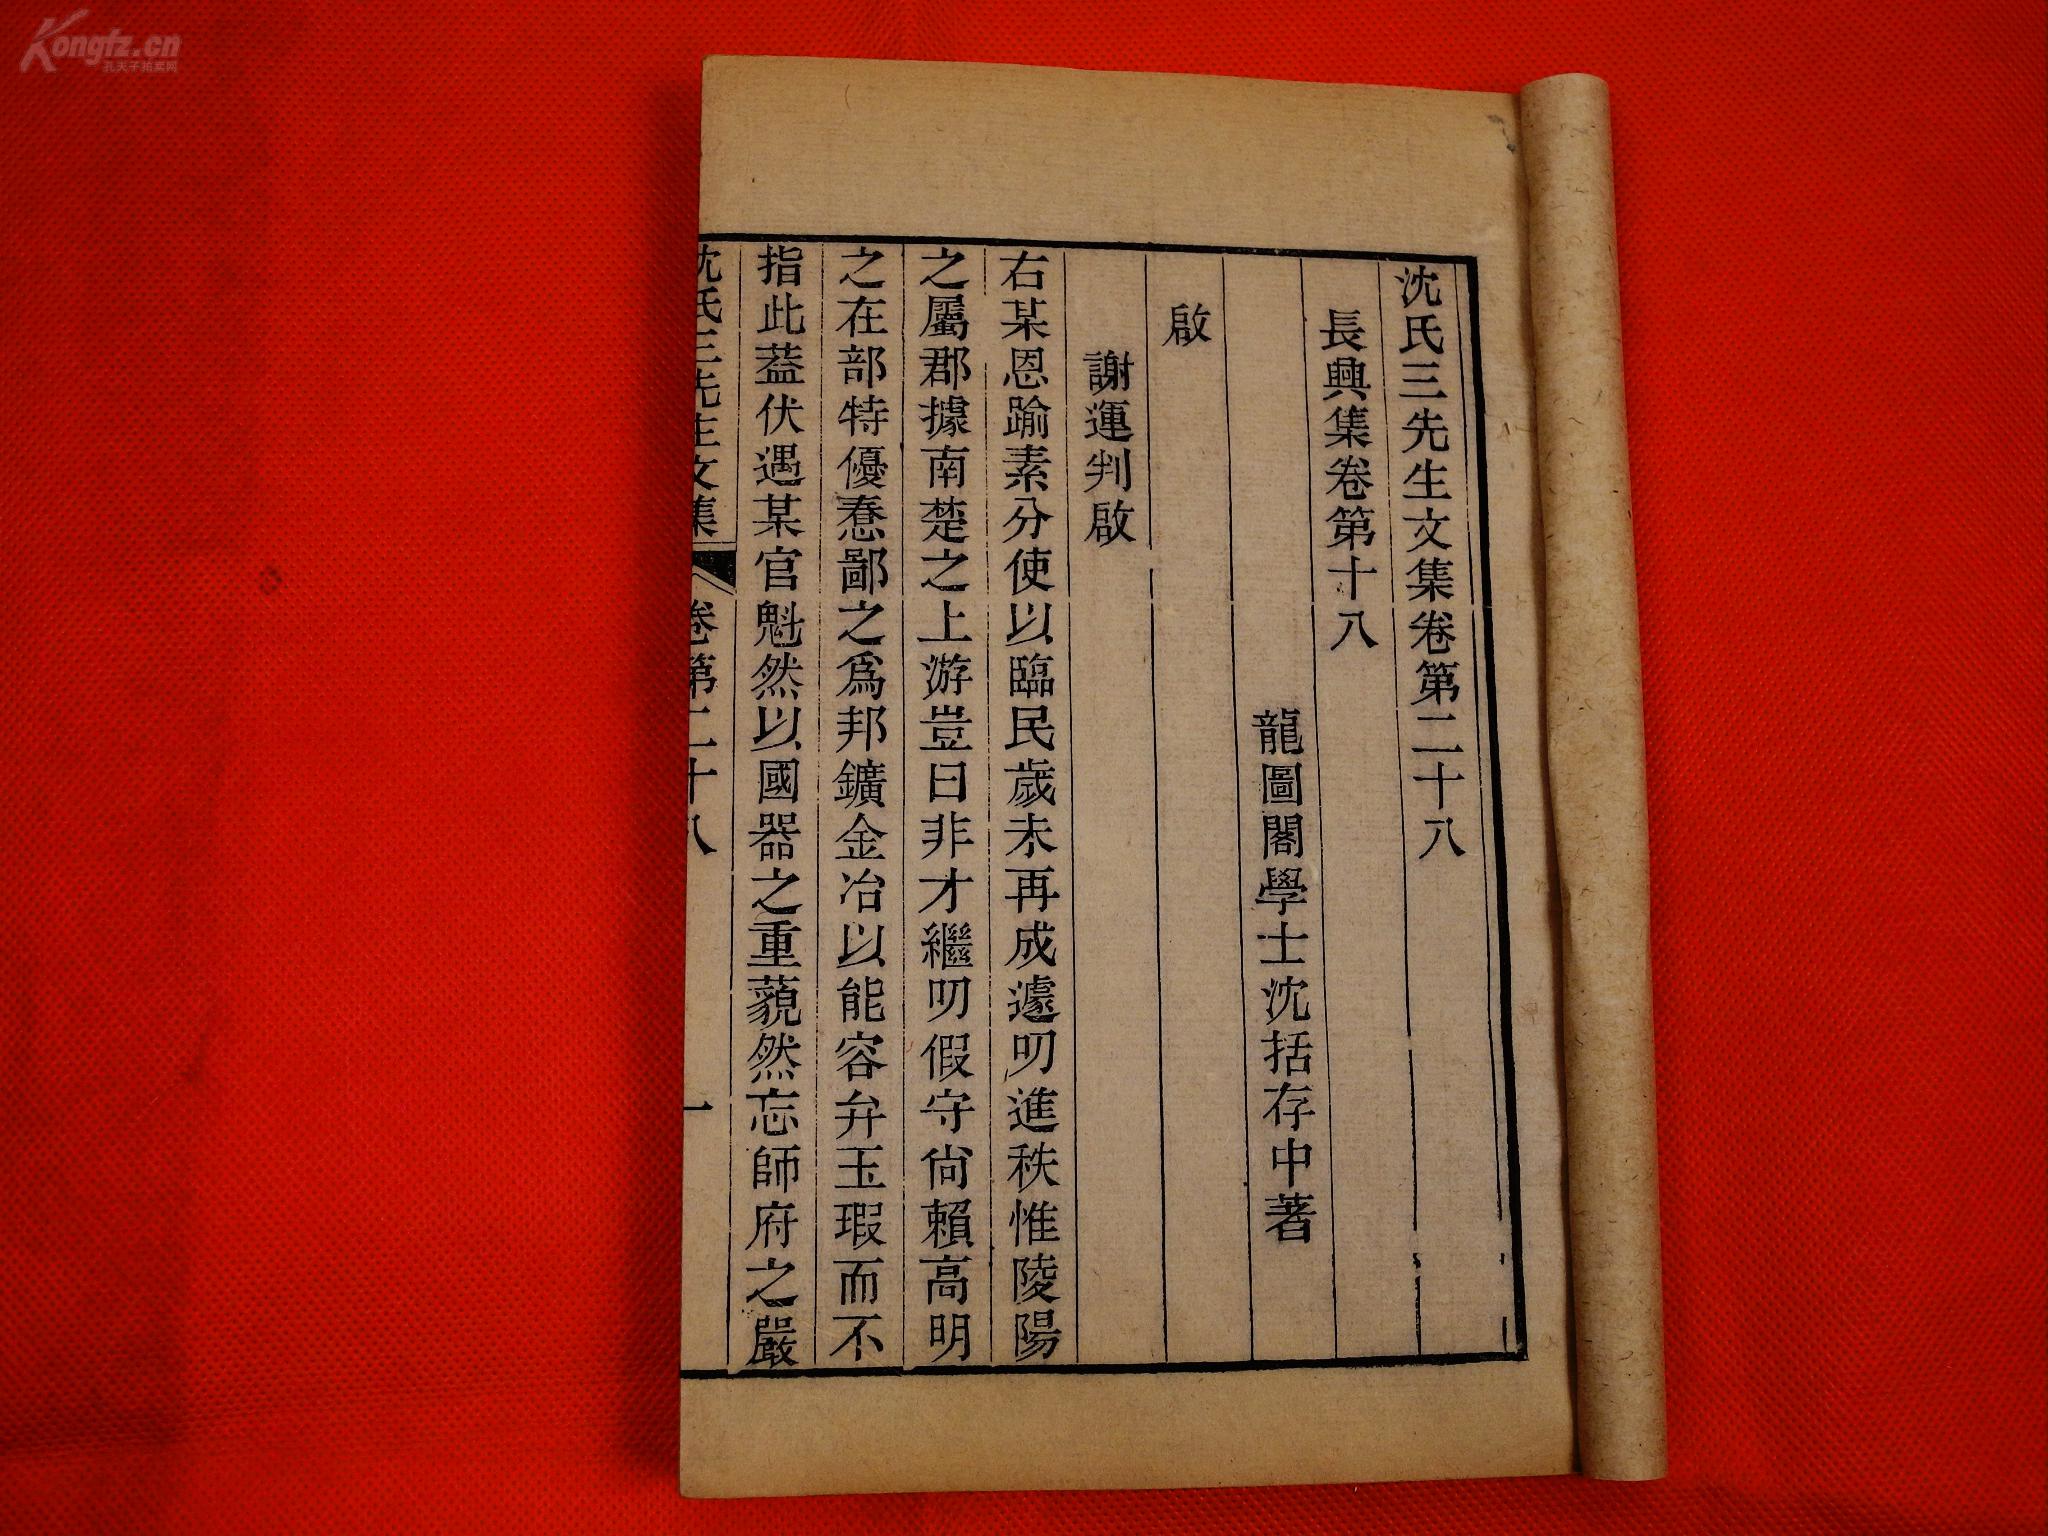 沈氏三先生文集卷第二十八
長興集卷第十八
龍圖閣學士沈括存中著
啟
謝運判啟
右某恩踰素分使以臨民歲未再成遽叨進秩惟陵陽
之屬郡據南楚之上游豈曰非才繼叨假守尙賴高明
之在部特優惷鄙之爲邦鑛金冶以能容弁玉瑕而不
指此葢伏遇某官魁然以國器之重藐然忘師府之嚴
沈氏三先生文集 卷第二十八 一
Kongfz.cn
孔夫子拍卖网